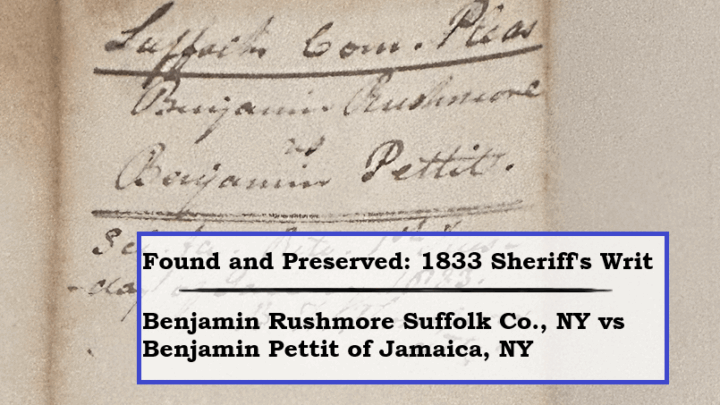 Suffolk Com. Pleas
Benjamin Rushmore
vs
Benjamin Pettit.
Found and Preserved: 1833 Sheriff's Writ
Benjamin Rushmore Suffolk Co., NY vs
Benjamin Pettit of Jamaica, NY